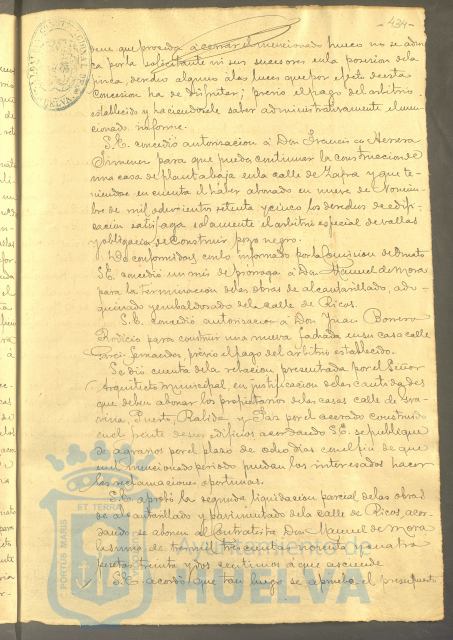 -434-
dene que proceda á cerrar el mencionado hueco no se adquie
ca por la solicitante ni sus sucesores en la posesion de la
finca, derecho alguno á las luces que por efecto de esta
concesion ha de disfrutar; previo el pago del arbitrio
establecido y haciendosele saber administrativamente el men
cionado informe.
S.E. concedió autorizacion á Don Francisco Herrera
Jimenez para que pueda continuar la construccion de
una casa de planta baja en la calle de Zafra y que te-
niendose en cuenta el haber abonado en nueve de Noviem-
bre de mil ochocientos setenta y cinco los derechos de edifi-
cacion satisfaga solamente el arbitrio especial de vallas
y obligacion de construir pozo negro.
De conformidad con lo informado por la Comision de Ornato
S.E. concedió un mes de prorroga á Don Manuel de Mora
para la terminacion de las obras de alcantarillado, ado-
quinado y embaldosado de la calle de Ricos.
S.E. concedió autorizacion á Don Juan Borrero
Rodicio para construir una nueva fachada en su casa calle
Garci-Fernandez, previo el pago del arbitrio establecido.
Se dió cuenta de la relacion presentada por el Señor
Arquitecto municipal, en justificacion de las cantidades
que deben abonar los propietarios de las casas calle de Gra-
vina, Puerto, Rabida y Isaz por el acerado construido
en el frente de sus edificios acordando S.E. se publique
de agravios por el plazo de ocho dias con el fin de que
en el mencionado periodo puedan los interesados hacer
las reclamaciones oportunas.
S.E. aprobó la segunda liquidacion parcial de las obras
de alcantarillado y pavimentado de la calle de Ricos, acor-
dando se abonen al Contratista Don Manuel de Mora
la suma de tres mil trescientas noventa y cuatro
pesetas treinta y dos centimos á que asciende.
S.E. acordó que tan luego se apruebe el presupuesto
ET TERRA
PORTUS MARIS
Ayuntamiento de
HUELVA